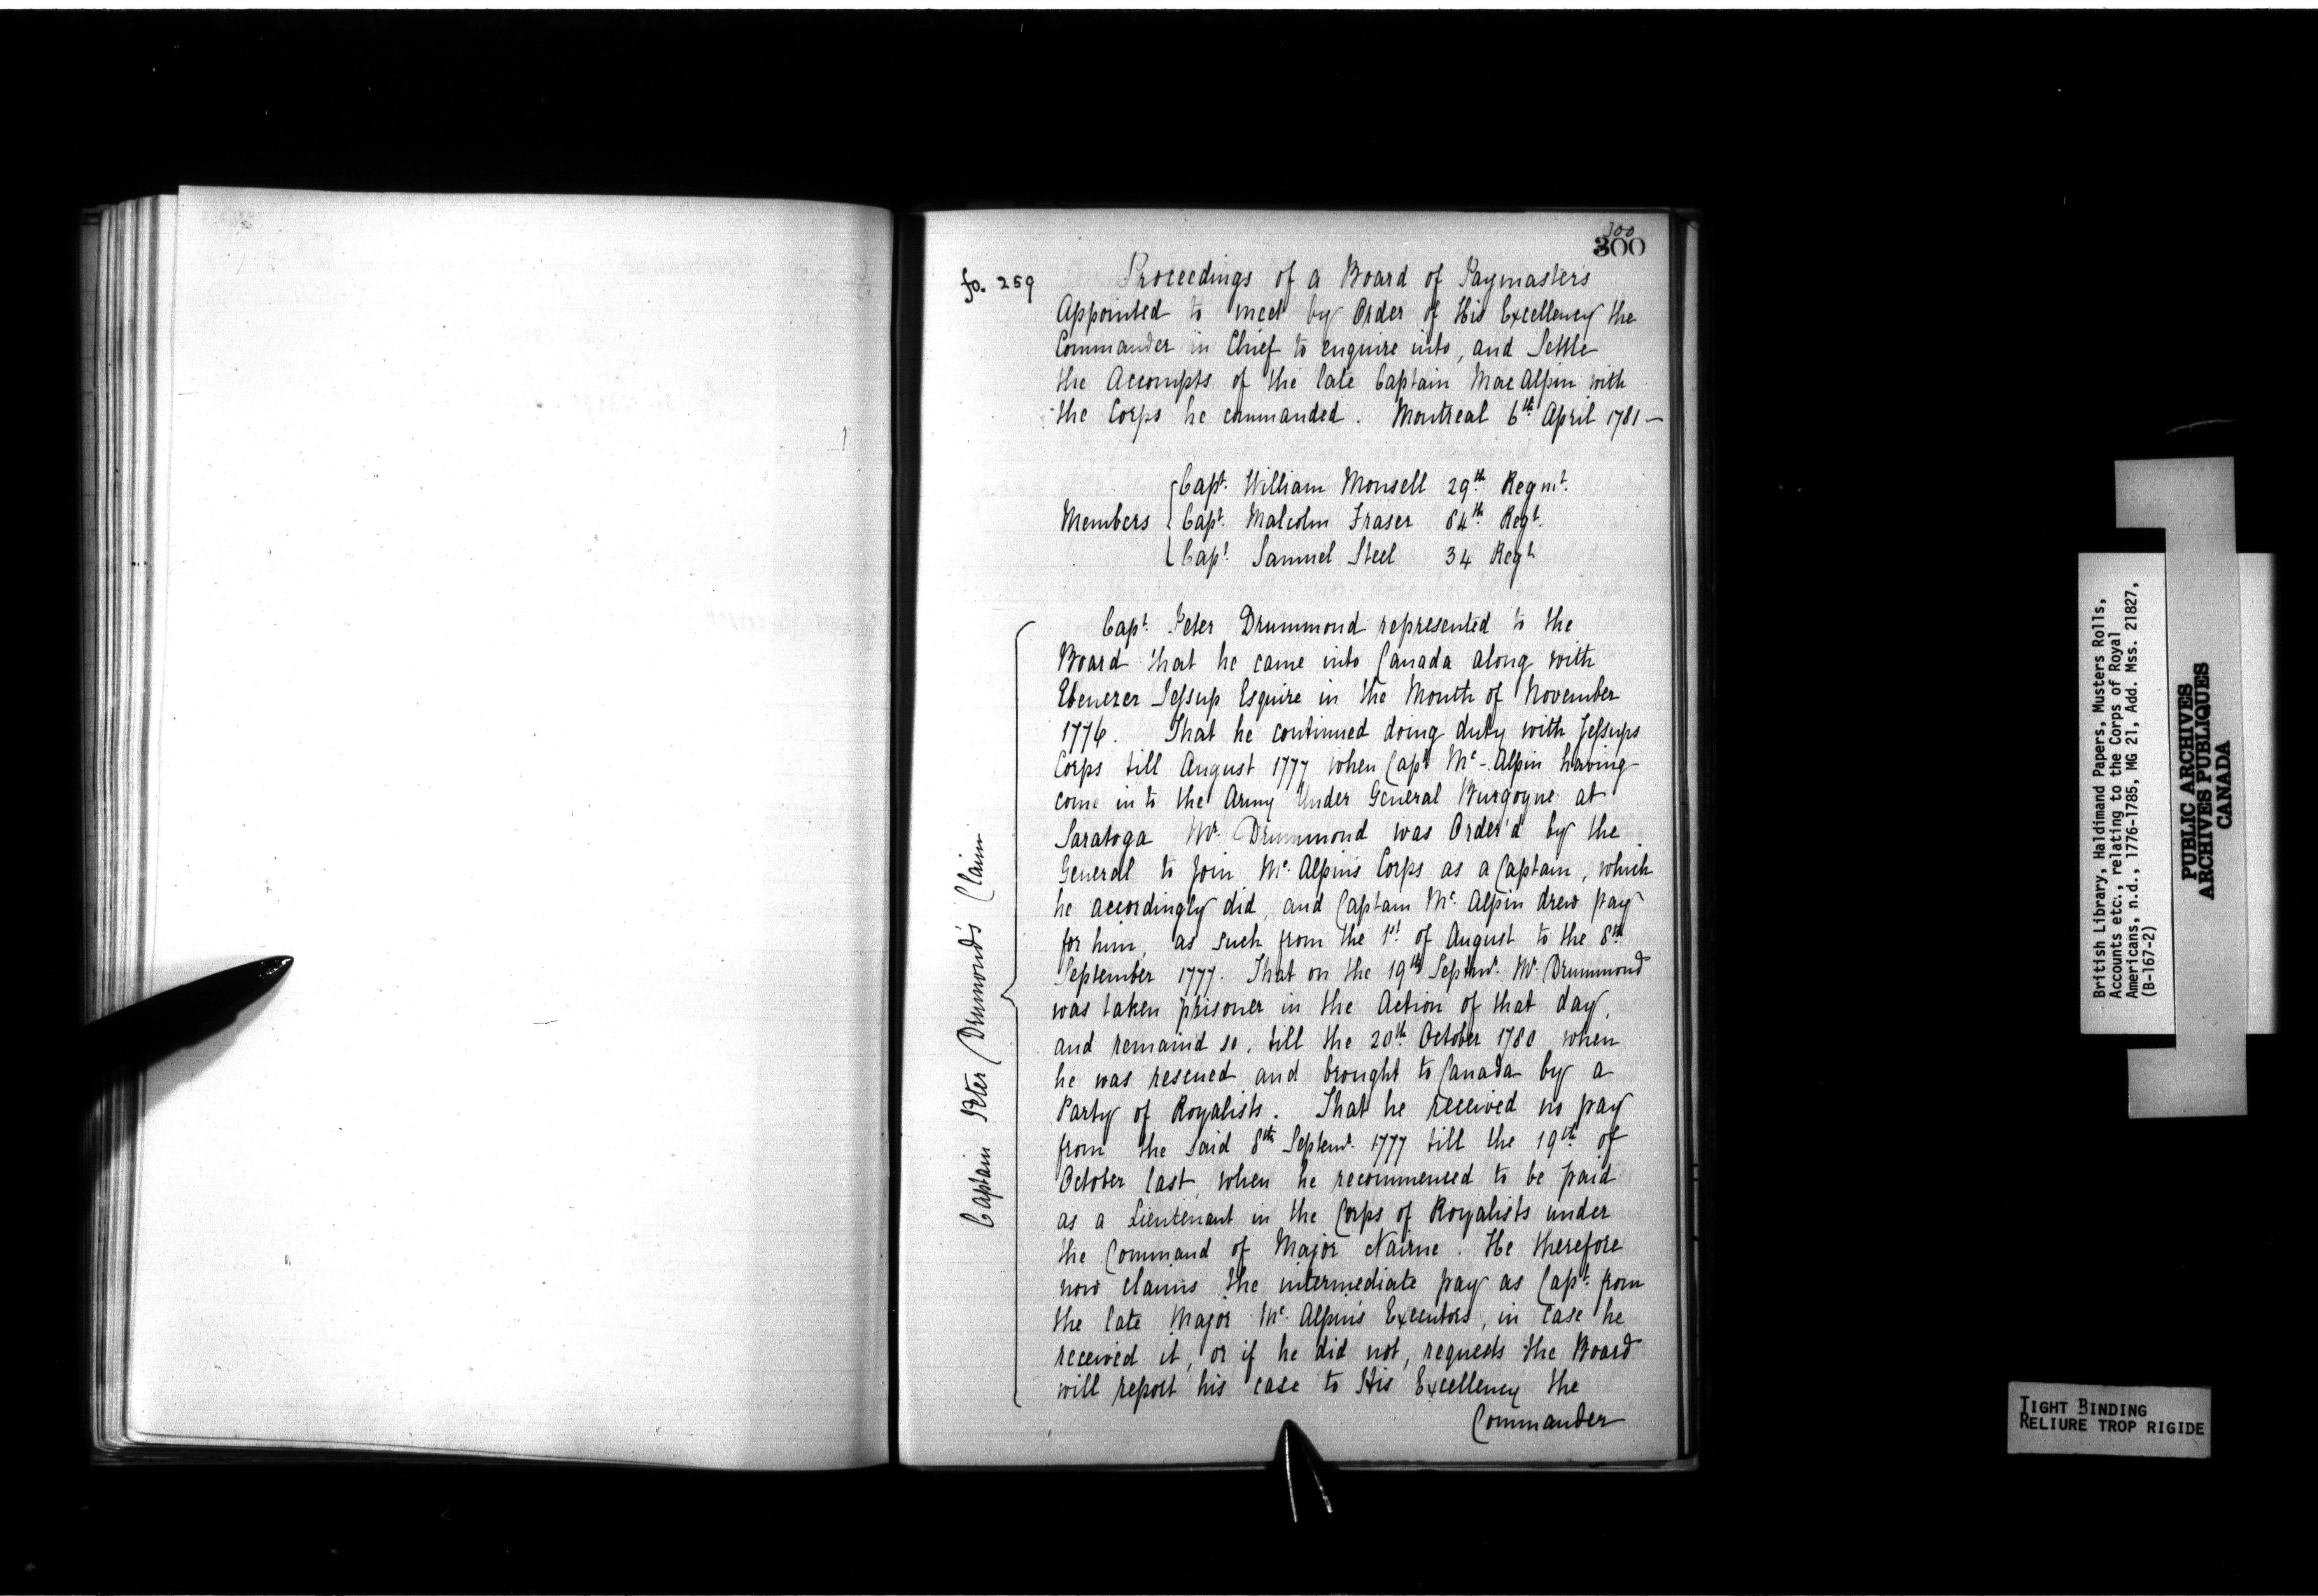 300
300
fo. 259
Proceedings of a Board of Paymasters
Appointed to meet by Order of His Excellency the
Commander in Chief to enquire into, and Settle
the Accompts of the late Captain Mac Alpin with
the Corps he commanded. Montreal 6th April 1781 –
Capt. William Monsell 29th Regmt.
Members Capt. Malcolm Fraser 84th Regt.
Capt. Samuel Steel 34 Regt
Captain Peter Drumond's Claim
Capt. Peter Drummond represented to the
Board that he came into Canada along with
Ebenezer Jessup Esquire in the Month of November
1776. That he continued doing duty with Jessups
Corps till August 1777 when Capt Mc-Alpin having
come in to the Army Under General Burgoyne at
Saratoga Mr. Drummond was Order'd by the
General to join Mc. Alpin's Corps as a Captain, which
he accordingly did, and Captain Mc. Alpin drew pay
for him, as such from the 1st of August to the 8th
September 1777. That on the 19th Septemr. Mr. Drummond
was taken prisoner in the Action of that day,
and remaind so, till the 20th October 1780 when
he was rescued and brought to Canada by a
Party of Royalists. That he received no pay
from the said 8th Septemr. 1777 till the 19th of
October last, when he recommenced to be paid
as a Lieutenant in the Corps of Royalists under
the Command of Major Nairne. He therefore
now claims the intermediate pay as Capt. from
the late Major Mc. Alpin's Executors, in case he
received it, or if he did not, requests the Board
will report his case to His Excellency the
Commander
British Library, Haldimand Papers, Musters Rolls,
Accounts etc., relating to the Corps of Royal
Americans, n.d., 1776-1785, MG 21, Add. Mss. 21827,
(B-167-2)
PUBLIC ARCHIVES
ARCHIVES PUBLIQUES
CANADA
TIGHT BINDING
RELIURE TROP RIGIDE